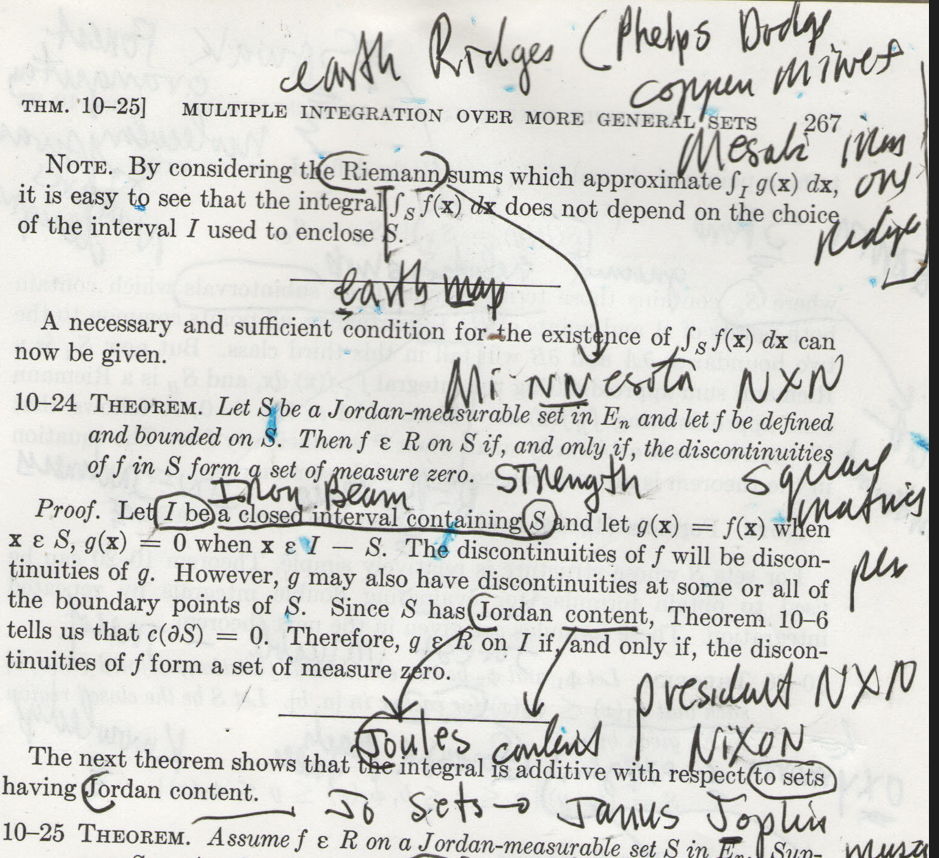 earth Ridges (Phelps Dodge
copper Mines
THM. 10–25] MULTIPLE INTEGRATION OVER MORE GENERAL SETS 267
Mesabi iron
ore
NOTE. By considering the Riemann sums which approximate ∫_I g(x) dx,
it is easy to see that the integral ∫_S f(x) dx does not depend on the choice
of the interval I used to enclose S.
earth map
A necessary and sufficient condition for the existence of ∫_S f(x) dx can
now be given.
Minnesota NXN
10–24 THEOREM. Let S be a Jordan-measurable set in E_n and let f be defined
and bounded on S. Then f ε R on S if, and only if, the discontinuities
of f in S form a set of measure zero.
strength Square
Iron Beam matrices
Proof. Let I be a closed interval containing S and let g(x) = f(x) when
x ε S, g(x) = 0 when x ε I − S. The discontinuities of f will be discon-
tinuities of g. However, g may also have discontinuities at some or all of
the boundary points of S. Since S has Jordan content, Theorem 10–6
tells us that c(∂S) = 0. Therefore, g ε R on I if, and only if, the discon-
tinuities of f form a set of measure zero.
president NXN
Joules content NIXON
The next theorem shows that the integral is additive with respect to sets
having Jordan content.
Jo sets → Janus Joplin
10–25 THEOREM. Assume f ε R on a Jordan-measurable set S in E_n. Sup-